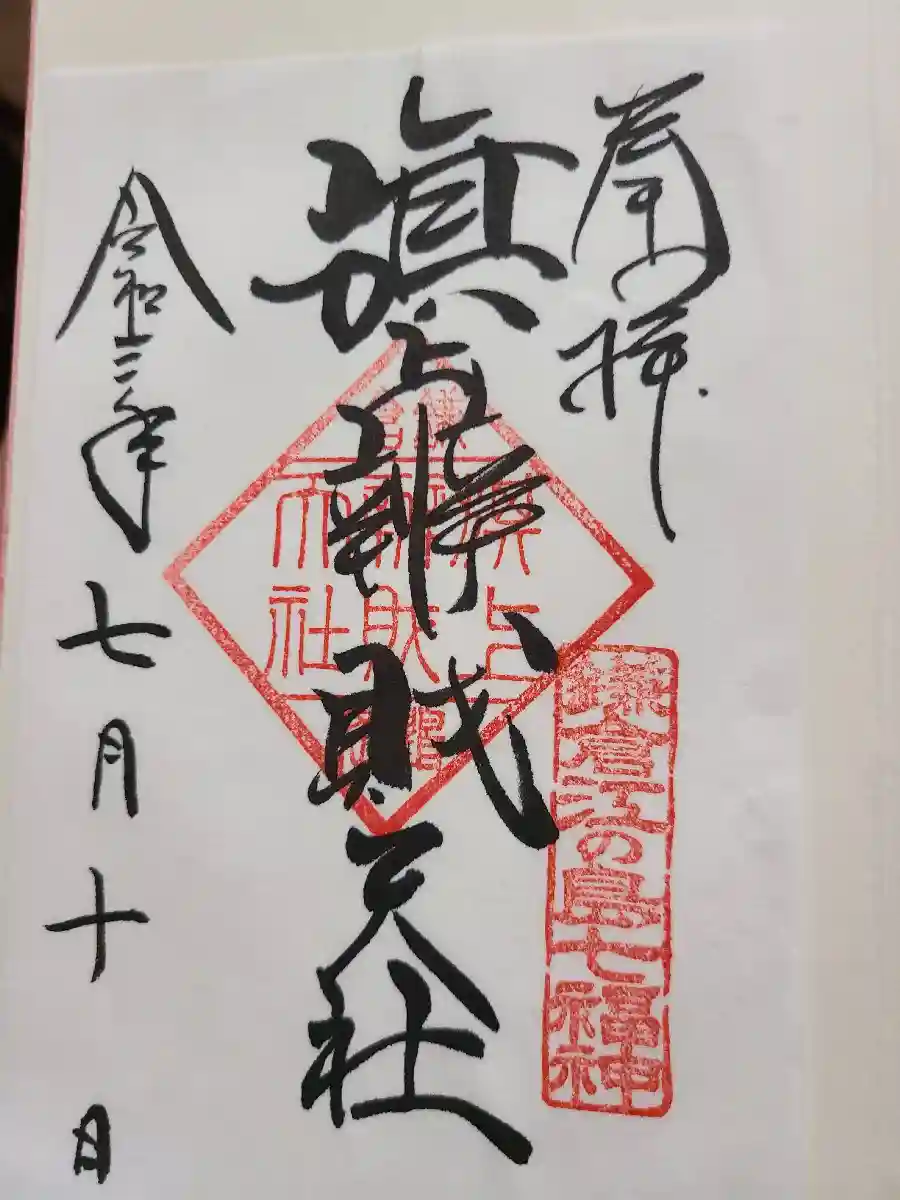 奉拝
旗上辨財天社
令和三年七月十日
鎌倉
旗上
辨財
天社
鎌倉江の島七福神